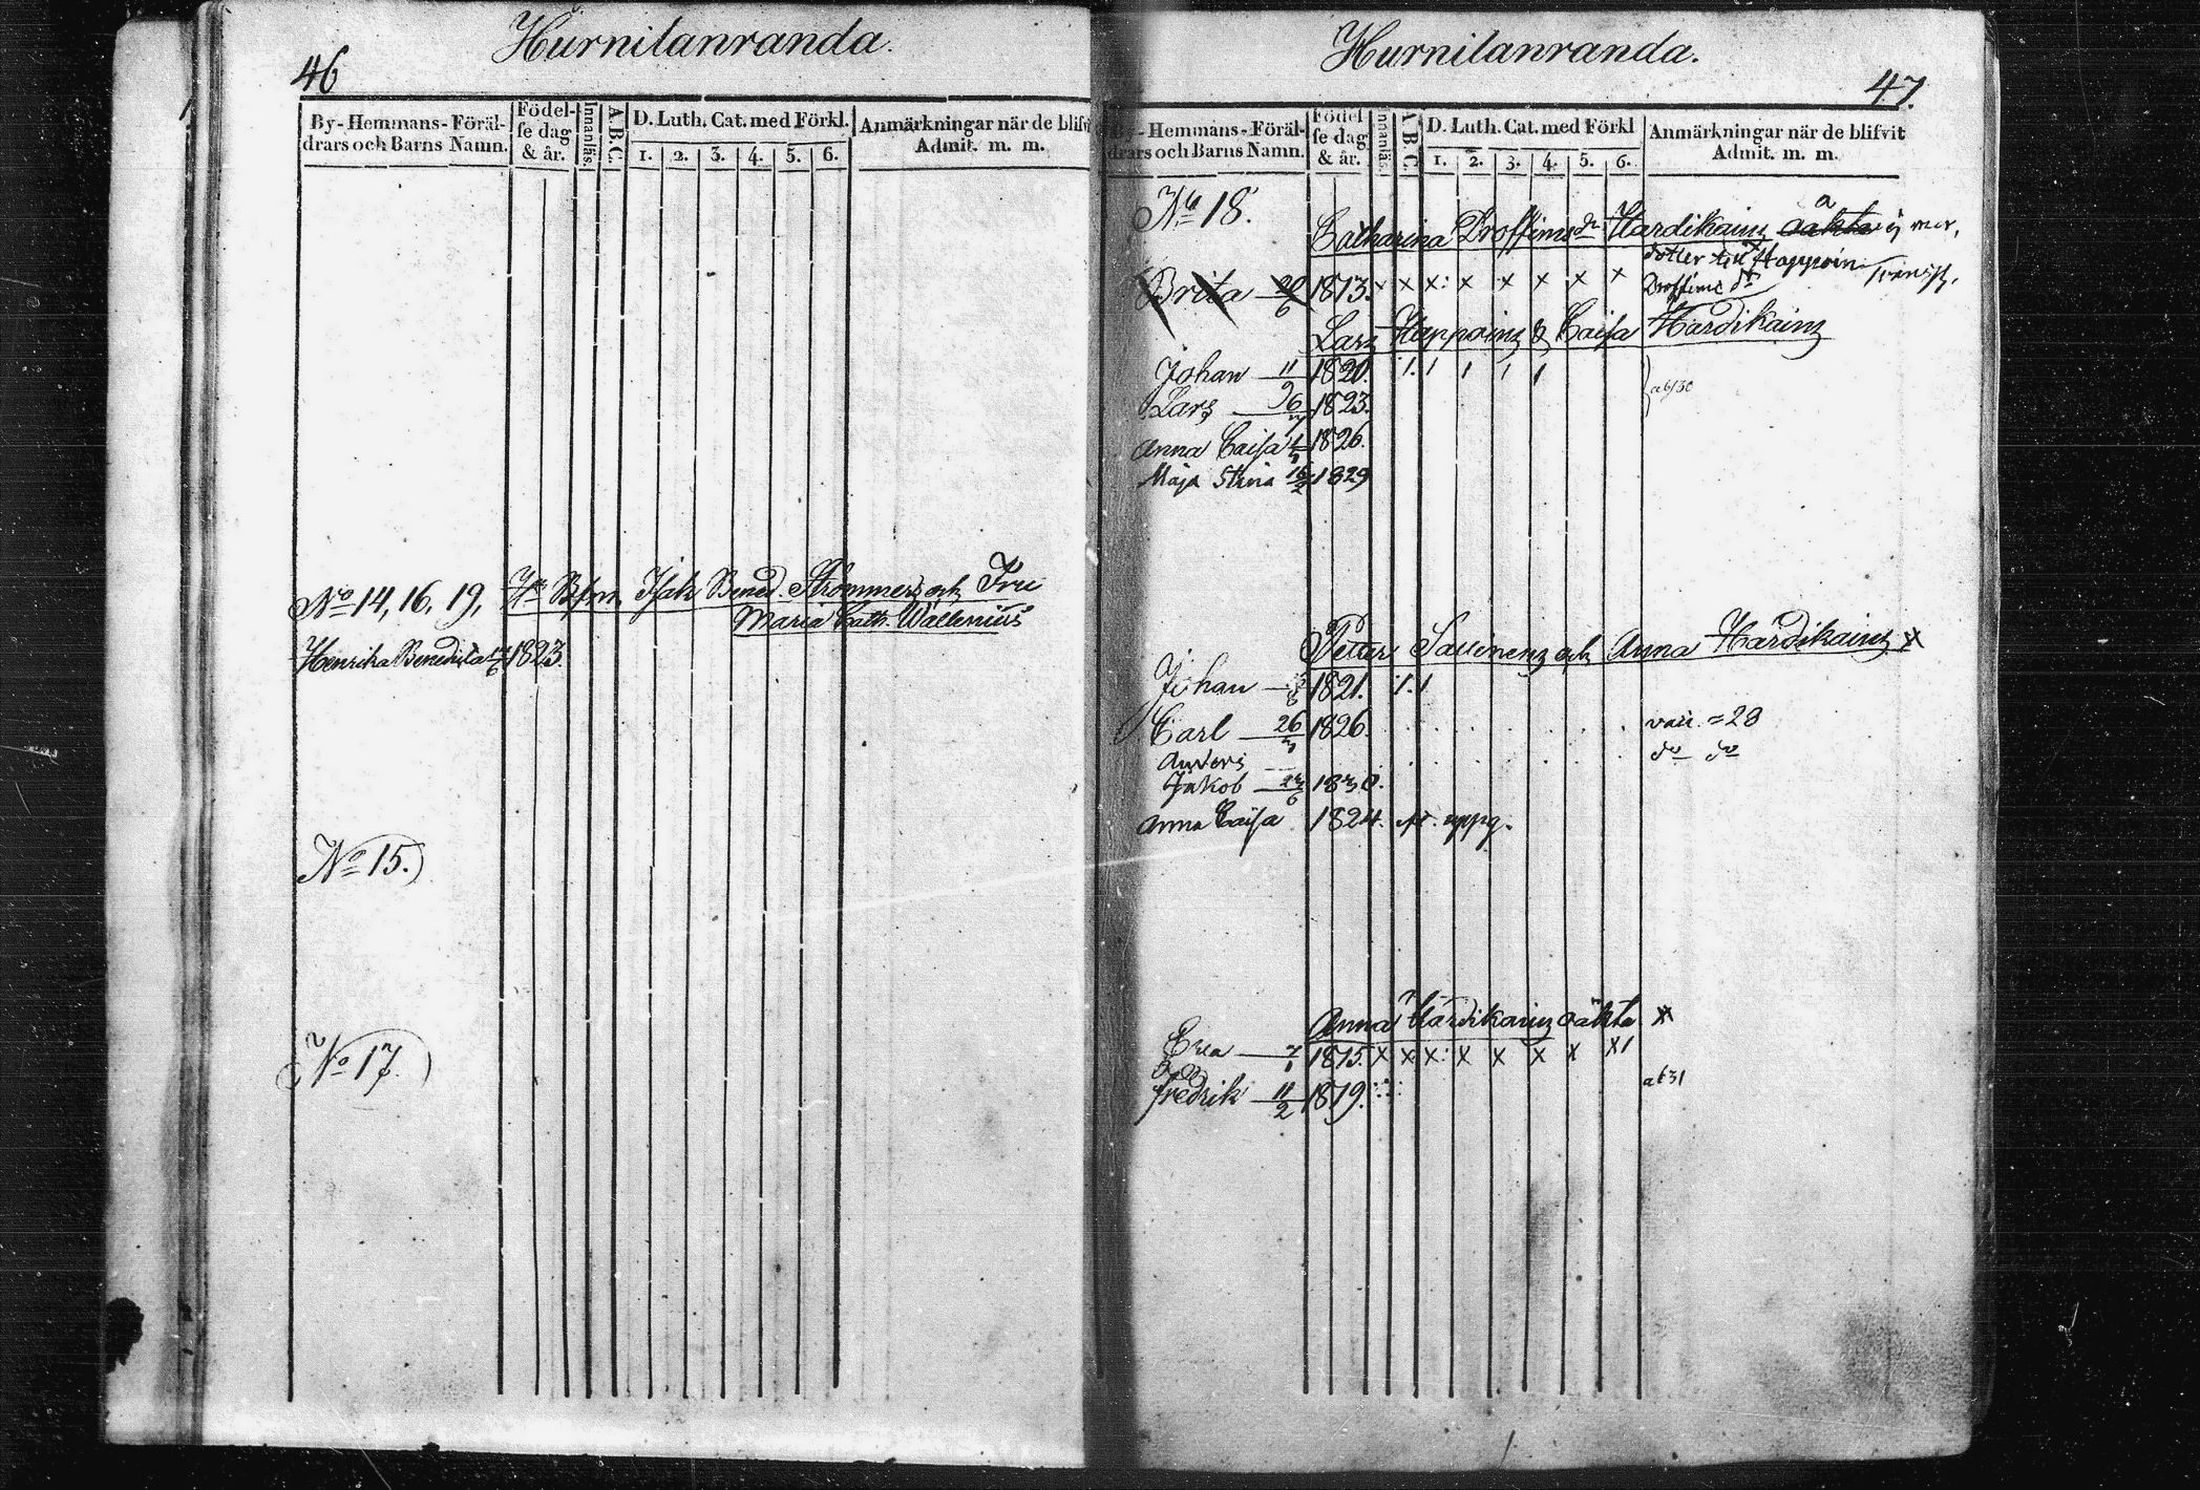 46
Hurnilanranda.
By-Hemmans-Föräl-
drars och Barns Namn.
Födel-
se dag
& år.
Innanläs.
A.B.C.
D. Luth. Cat. med Förkl.
1. 2. 3. 4. 5. 6.
Anmärkningar när de blifvit
Admit. m. m.
No 14, 16, 19, Hr Bfm. Isak Bened. Strömmer och Fru
Maria Cath. Wallenius
Henrika Benedicta 1823.
No 15.)
(No 17.)
Hurnilanranda.
47.
By-Hemmans-Föräl-
drars och Barns Namn.
Födel
se dag
& år.
Innanläs.
A.B.C.
D. Luth. Cat. med Förkl
1. 2. 3. 4. 5. 6.
Anmärkningar när de blifvit
Admit. m. m.
No 18.
Catharina Hardikainz
dotter till Happoin
Brita 20/6 1813. x x x: x x x x x
Lars Happoinz & Caisa Hardikainz
Johan 11 1820. 1. 1 1 1 1
Lars 1823.
Anna Caisa 1826.
Maja Stina 16/2 1829
Petter och Anna Hardikainz x
Johan 1821. 1. 1
Carl 26/3 1826. = 28
Anders do do
Jakob 1830.
Anna Caisa 1824. uppg.
Anna Hardikainz oäkta x
Eva 1815. x x x: x x x x x1
Fredrik 11/2 1819.